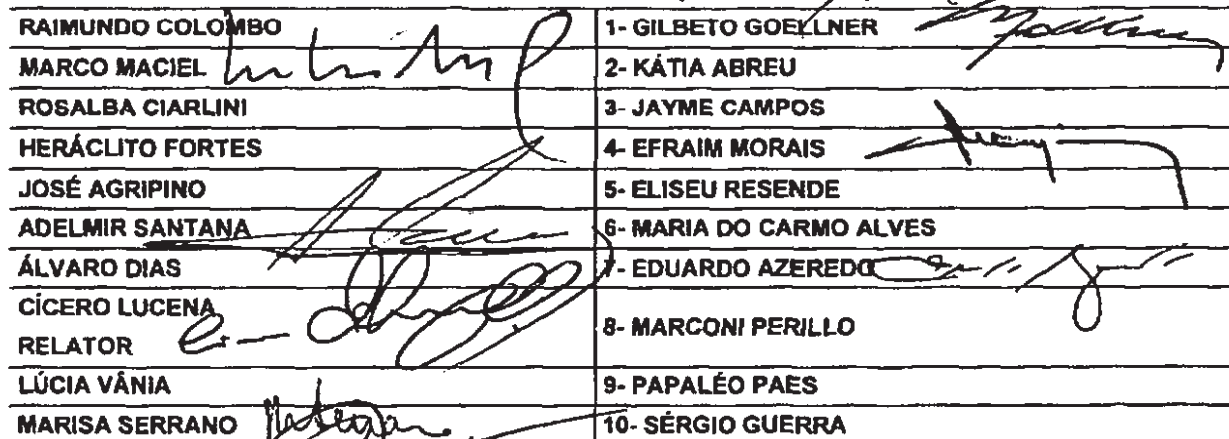 RAIMUNDO COLOMBO 1- GILBETO GOELLNER
MARCO MACIEL 2- KÁTIA ABREU
ROSALBA CIARLINI 3- JAYME CAMPOS
HERÁCLITO FORTES 4- EFRAIM MORAIS
JOSÉ AGRIPINO 5- ELISEU RESENDE
ADELMIR SANTANA 6- MARIA DO CARMO ALVES
ÁLVARO DIAS 7- EDUARDO AZEREDO
CÍCERO LUCENA
RELATOR 8- MARCONI PERILLO
LÚCIA VÂNIA 9- PAPALÉO PAES
MARISA SERRANO 10- SÉRGIO GUERRA